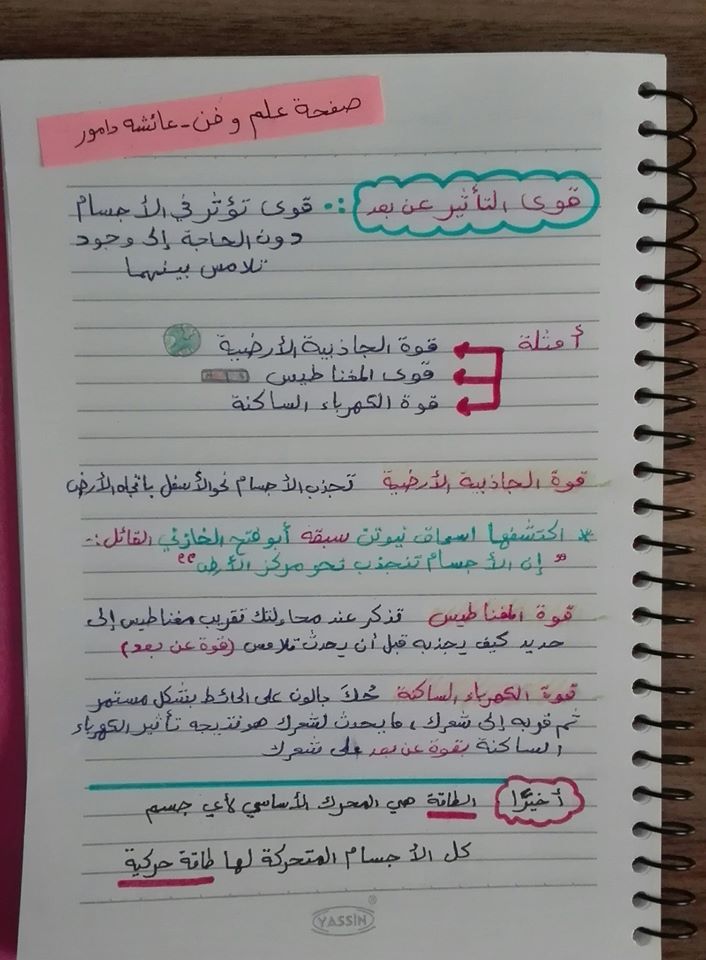 صفحة علم و فن - عائشه دامور
قوى التأثير عن بعد :. قوى تؤثر في الأجسام
دون الحاجة إلى وجود
تلامس بينهما
أمثلة قوة الجاذبية الأرضية
قوى المغناطيس
قوة الكهرباء الساكنة
قوة الجاذبية الأرضية تجذب الأجسام نحو الأسفل باتجاه الأرض
* اكتشفها اسحاق نيوتن سبقه أبو فتح الخازني القائل :-
" إن الأجسام تنجذب نحو مركز الأرض "
قوة المغناطيس تذكر عند محاولتك تقريب مغناطيس إلى
حديد كيف يجذبه قبل أن يحدث تلامس (قوة عن بعد)
قوة الكهرباء الساكنة حُكَ بالون على الحائط بشكل مستمر
ثم قربه إلى شعرك ، ما يحدث لشعرك هو نتيجه تأثير الكهرباء
الساكنة بقوة عن بعد على شعرك
أخيرًا الطاقة هي المحرك الأساسي لأي جسم
كل الأجسام المتحركة لها طاقة حركية
YASSIN®